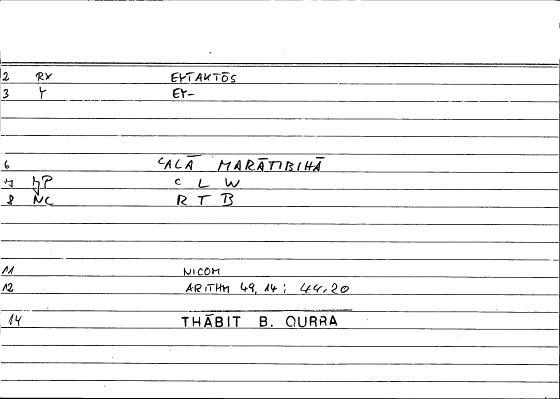 2 RX EYTAKTŌS
3 Y EY-
6 ʿALĀ MARĀTIBIHĀ
C L W
8 NC R T B
11 NICOM
12 ARITHM 49,14; 44,20
14 THĀBIT B. QURRA